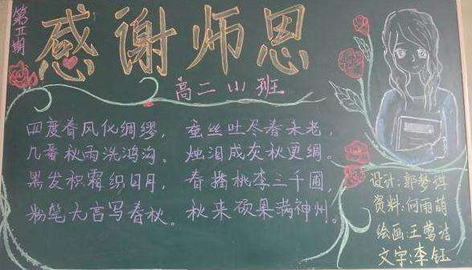 感谢师恩
高二(1)班
四度春风化绸缪,
几番秋雨洗鸿沟。
黑发积霜织日月,
粉笔无言写春秋。
蚕丝吐尽春未老,
烛泪成灰秋更绸。
春播桃李三千圃,
秋来硕果满神州。
设计:郭梦琪
资料:何雨萌
绘画 王莺洁
文字:李钰